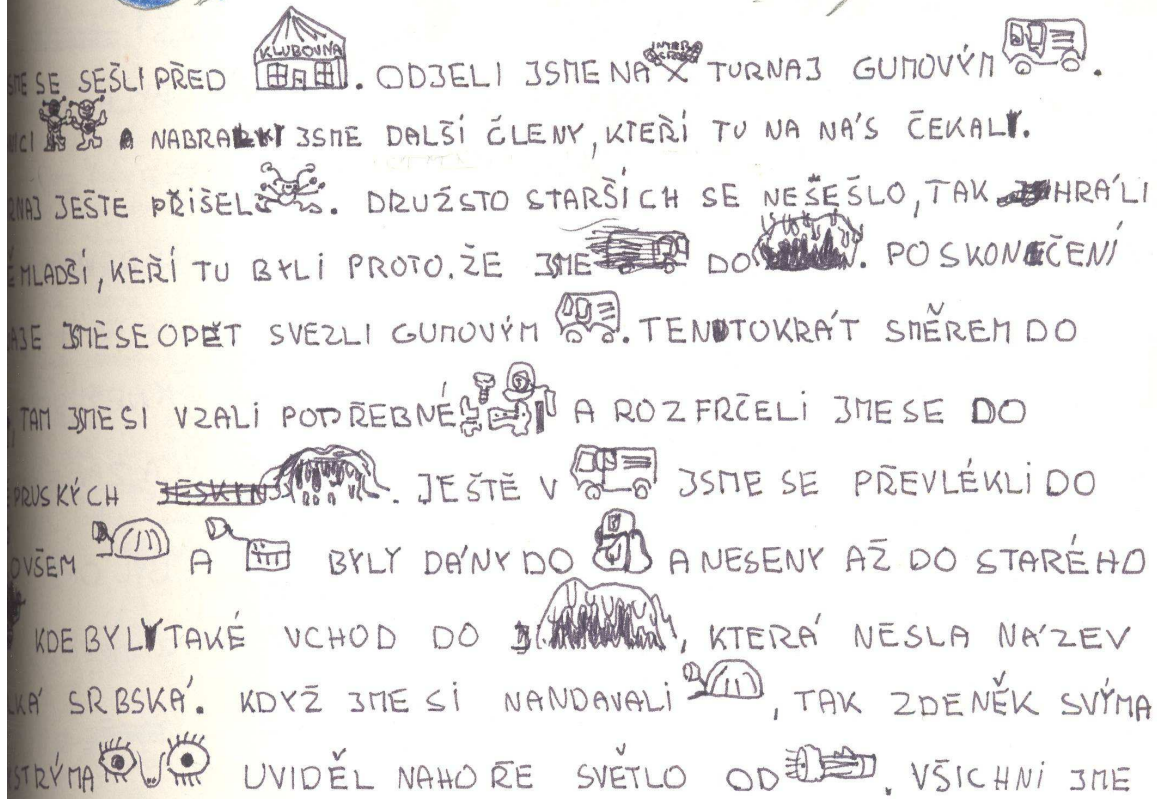 SE SEŠLI PŘED KLUBOVNA. ODJELI JSME NA TURNAJ GUMOVÝM.
A NABRALI JSME DALŠÍ ČLENY, KTEŘÍ TU NA NÁS ČEKALY.
JEŠTE PŘIŠEL. DRUŽSTO STARŠÍCH SE NEŠEŠLO, TAK HRÁLI
MLADŠÍ, KEŘÍ TU BYLI PROTO.ŽE JME DO. PO SKONČENÍ
JSME SE OPĚT SVEZLI GUMOVÝM. TENTOKRÁT SMĚREM DO
TAM JSME SI VZALI POTŘEBNÉ A ROZFRČELI JME SE DO
PRUSKÝCH. JEŠTĚ V JSME SE PŘEVLÉKLI DO
OVŠEM A BYLY DÁNY DO A NESENY AŽ DO STARÉHO
KDE BYL TAKÉ VCHOD DO, KTERÁ NESLA NÁZEV
SRBSKÁ. KDYŽ JME SI NANDAVALI, TAK ZDENĚK SVÝMA
STRÝMA UVIDĚL NAHOŘE SVĚTLO OD. VŠICHNI JME